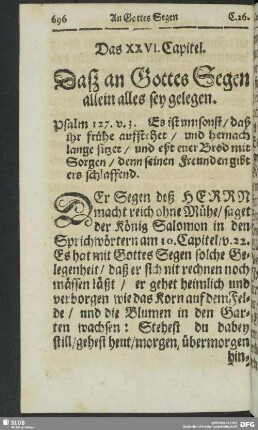 696 An Gottes Segen C.26.
Das XXVI. Capitel.
Daß an Gottes Segen
allein alles sey gelegen.
Psalm 127. v. 3. Es ist umsonst / daß
ihr frühe auffstehet / und hernach
lange sitzet / und eßt euer Brod mit
Sorgen / denn seinen Freunden gibt
ers schlaffend.
DEr Segen deß HERRN
macht reich ohne Mühe / saget
der König Salomon in den
Sprichwörtern am 10. Capitel / v. 22.
Es hat mit Gottes Segen solche Ge-
legenheit / daß er sich nit rechnen noch
mässen läßt / er gehet heimlich und
verborgen wie das Korn auf dem Fel-
de / und die Blumen in den Gar-
ten wachsen: Stehest du dabey
still / gehest heut / morgen, übermorgen
hin-
SLUB
DFG